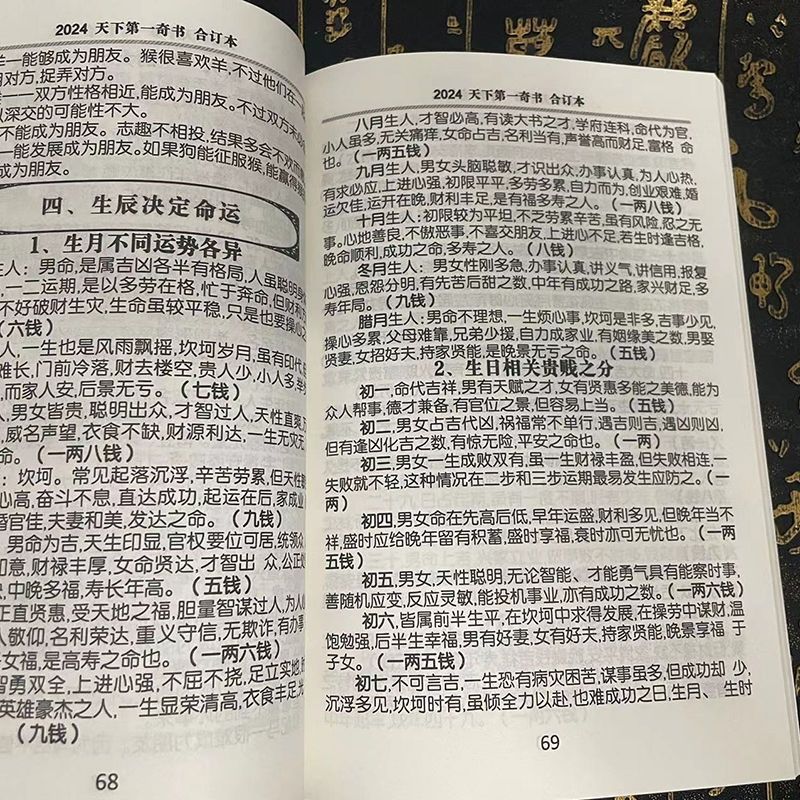 2024 天下第一奇书 合订本
羊一能够成为朋友。猴很喜欢羊,不过他们在一
对方,捉弄对方。
一双方性格相近,能成为朋友。不过双方未
以深交的可能性不大。
不能成为朋友。志趣不相投,结果多会不欢而
一能发展成为朋友。如果狗能征服猴,能赢得
成为朋友。
四、生辰决定命运
1、生月不同运势各异
生人:男命,是属吉凶各半有格局,人虽聪明
,一二运期,是以多劳在格,忙于奔命,但财利
不好破财生灾,生命虽较平稳,只是也要操心
(六钱)
人,一生也是风雨飘摇,坎坷岁月,虽有印代
难长,门前冷落,财去楼空,贵人少,小人多,
而家人安,后景无亏。(七钱)
,男女皆贵,聪明出众,才智过人,天性直爽,
,威名声望,衣食不缺,财源利达,一生无灾无
。(一两八钱)
:坎坷。常见起落沉浮,辛苦劳累,但天性
心高,奋斗不息,直达成功,起运在后,家成业
婚官佳,夫妻和美,发达之命。(九钱)
:男命为吉,天生印显,官权要位可居,统领众
如意,财禄丰厚,女命贤达,才智出 众,公正
,中晚多福,寿长年高。(五钱)
正直贤惠,受天地之福,胆量智谋过人,为人心
人敬仰,名利荣达,重义守信,无欺诈,有办事
女福,是高寿之命也。(一两六钱)
智勇双全,上进心强,不屈不挠,足立实地,
英雄豪杰之人,一生显荣清高,衣食丰足
(九钱)
68
2024 天下第一奇书 合订本
八月生人,才智必高,有读大书之才,学府连科,命代为官,
小人虽多,无关痛痒,女命占吉,名利当有,声誉高而财足,富格 命
也。(一两五钱)
九月生人,男女头脑聪敏,才识出众,办事认真,为人心热,
有求必应,上进心强,初限平平,多劳多累,自力而为,创业艰难,婚
运欠佳,运开在晚,财利丰足,是有福多寿之人。(一两八钱)
十月生人:初限较为平坦,不乏劳累辛苦,虽有风险,忍之无
事。心地善良,不傲恶事,不喜交朋友,上进心不足,若生时逢吉格,
晚命顺利,成功之命,多寿之人。(八钱)
冬月生人:男女性刚多急,办事认真,讲义气,讲信用,报复
心强,恩怨分明,有先苦后甜之数,中年有成功之路,家兴财足,多
寿年局。(九钱)
腊月生人:男命不理想,一生烦心事,坎坷是非多,吉事少见,
操心多累,父母难靠,兄弟少援,自力成家业,有姻缘美之数,男娶
贤妻,女招好夫,持家贤能,是晚景无亏之命。(五钱)
2、生日相关贵贱之分
初一,命代吉祥,男有天赋之才,女有贤惠多能之美德,能为
众人帮事,德才兼备,有官位之景,但容易上当。(五钱)
初二,男女占吉代凶,祸福常不单行,遇吉则吉,遇凶则凶,
但有逢凶化吉之数,有惊无险,平安之命也。(一两)
初三,男女一生成败双有,虽一生财禄丰盈,但失败相连,一
失败就不轻,这种情况在二步和三步运期最易发生应防之。(一
两)
初四,男女命在先高后低,早年运盛,财利多见,但晚年当不
祥,盛时应给晚年留有积蓄,盛时享福,衰时亦可无忧也。(一两
五钱)
初五,男女,天性聪明,无论智能、才能勇气具有能察时事,
善随机应变,反应灵敏,能投机事业,亦有成功之数。(一两六钱)
初六,皆属前半生平,在坎坷中求得发展,在操劳中谋财温
饱勉强,后半生幸福,男有好妻,女有好夫,持家贤能,晚景享福 于
子女。(一两五钱)
初七,不可言吉,一生恐有病灾困苦,谋事虽多,但成功却 少,
沉浮多见,坎坷时有,虽倾全力以赴,也难成功之日,生月、 生时
69